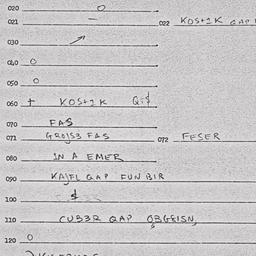 020 O
021 — 022 KOS+2K GAP
030 ↗
040 O
050 O
060 + KOS+2K Q=$
070 FAS
071 GROJS3 FAS 072 FESER
080 IN A EMER
090 KAJFL QAP FUN BIR
100 $
110 CUB3R QAP
120 O